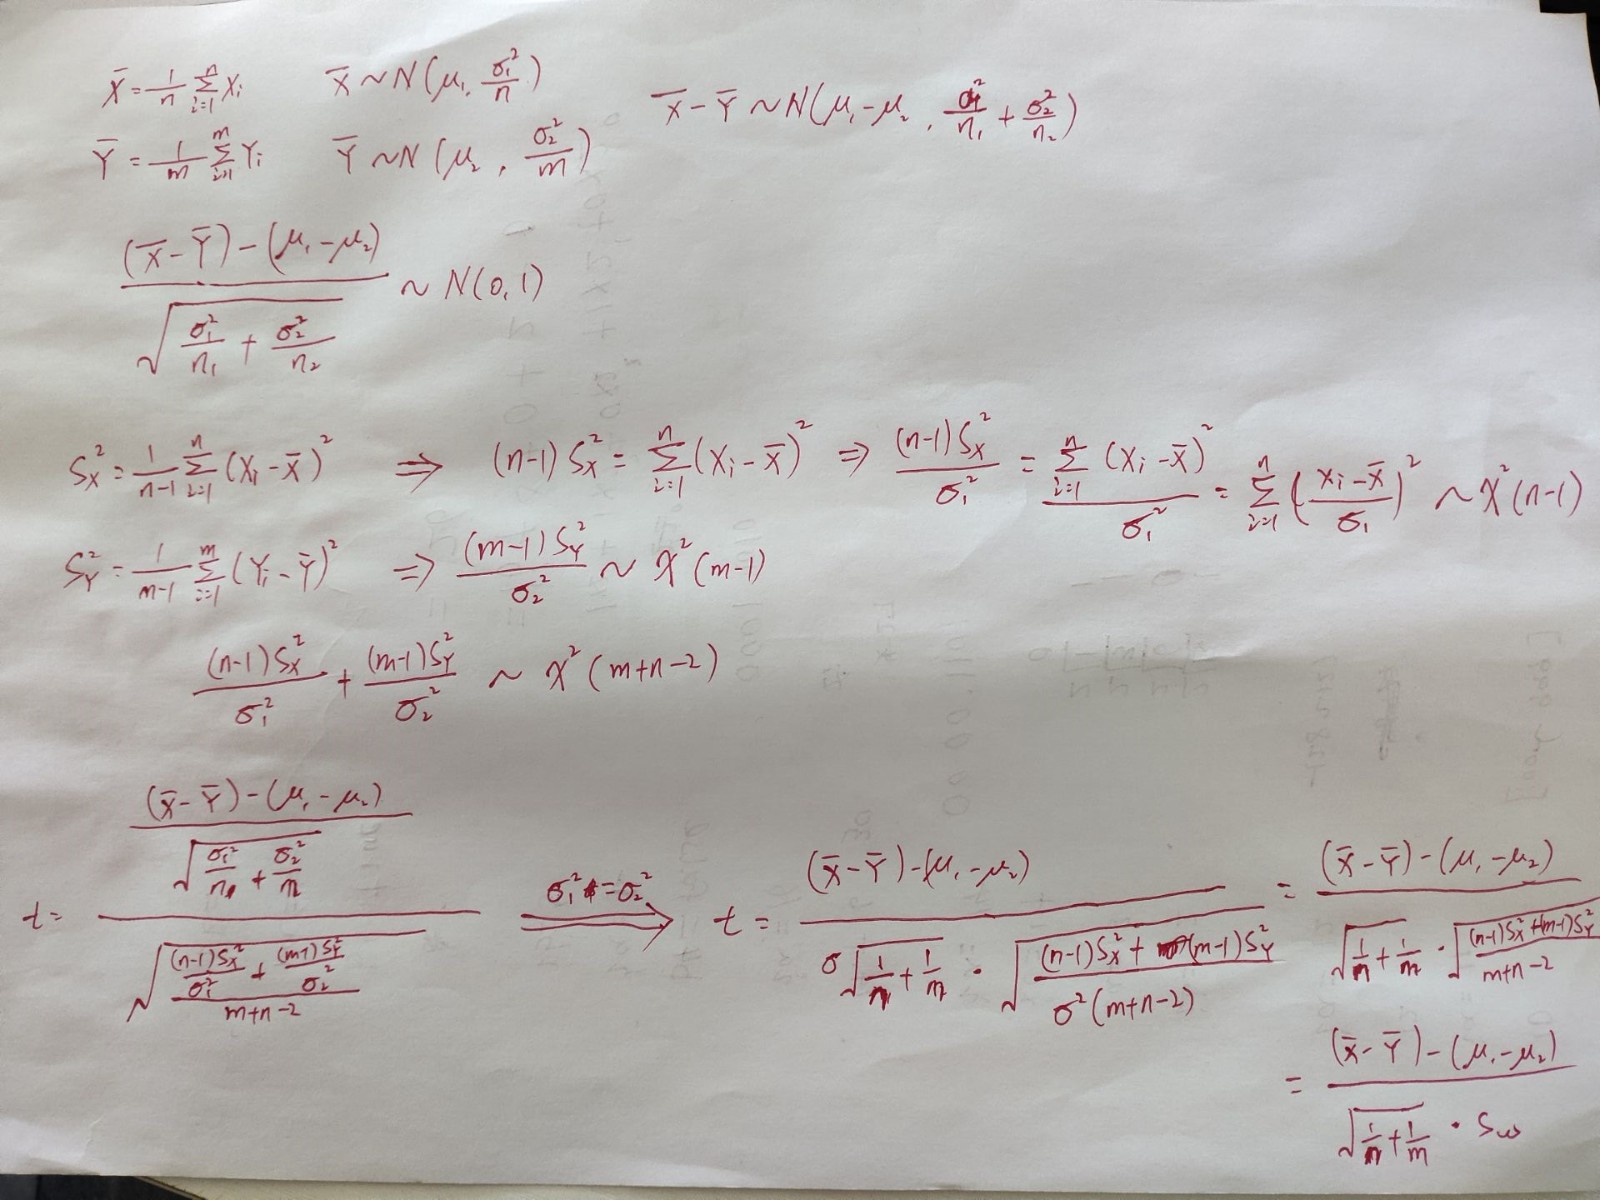 X̄ = 1/n Σ_{i=1}^{n} Xᵢ    X̄ ~ N(μ₁, σ₁²/n)    X̄ - Ȳ ~ N(μ₁ - μ₂, σ₁²/n₁ + σ₂²/n₂)
Ȳ = 1/m Σ_{i=1}^{m} Yᵢ    Ȳ ~ N(μ₂, σ₂²/m)
((X̄ - Ȳ) - (μ₁ - μ₂)) / √(σ₁²/n₁ + σ₂²/n₂) ~ N(0, 1)
S_X² = 1/(n-1) Σ_{i=1}^{n} (Xᵢ - X̄)² ⇒ (n-1)S_X² = Σ_{i=1}^{n} (Xᵢ - X̄)² ⇒ (n-1)S_X²/σ₁² = Σ_{i=1}^{n} (Xᵢ - X̄)²/σ₁² = Σ_{i=1}^{n} ((Xᵢ - X̄)/σ₁)² ~ χ²(n-1)
S_Y² = 1/(m-1) Σ_{i=1}^{m} (Yᵢ - Ȳ)² ⇒ (m-1)S_Y²/σ₂² ~ χ²(m-1)
(n-1)S_X²/σ₁² + (m-1)S_Y²/σ₂² ~ χ²(m+n-2)
t = [((X̄ - Ȳ) - (μ₁ - μ₂)) / √(σ₁²/n + σ₂²/m)] / √(((n-1)S_X²/σ₁² + (m-1)S_Y²/σ₂²)/(m+n-2)) ⇒ (σ₁² = σ₂²) t = ((X̄ - Ȳ) - (μ₁ - μ₂)) / (σ√(1/n + 1/m) · √(((n-1)S_X² + (m-1)S_Y²)/(σ²(m+n-2)))) = ((X̄ - Ȳ) - (μ₁ - μ₂)) / (√(1/n + 1/m) · √(((n-1)S_X² + (m-1)S_Y²)/(m+n-2)))
= ((X̄ - Ȳ) - (μ₁ - μ₂)) / (√(1/n + 1/m) · S_ω)